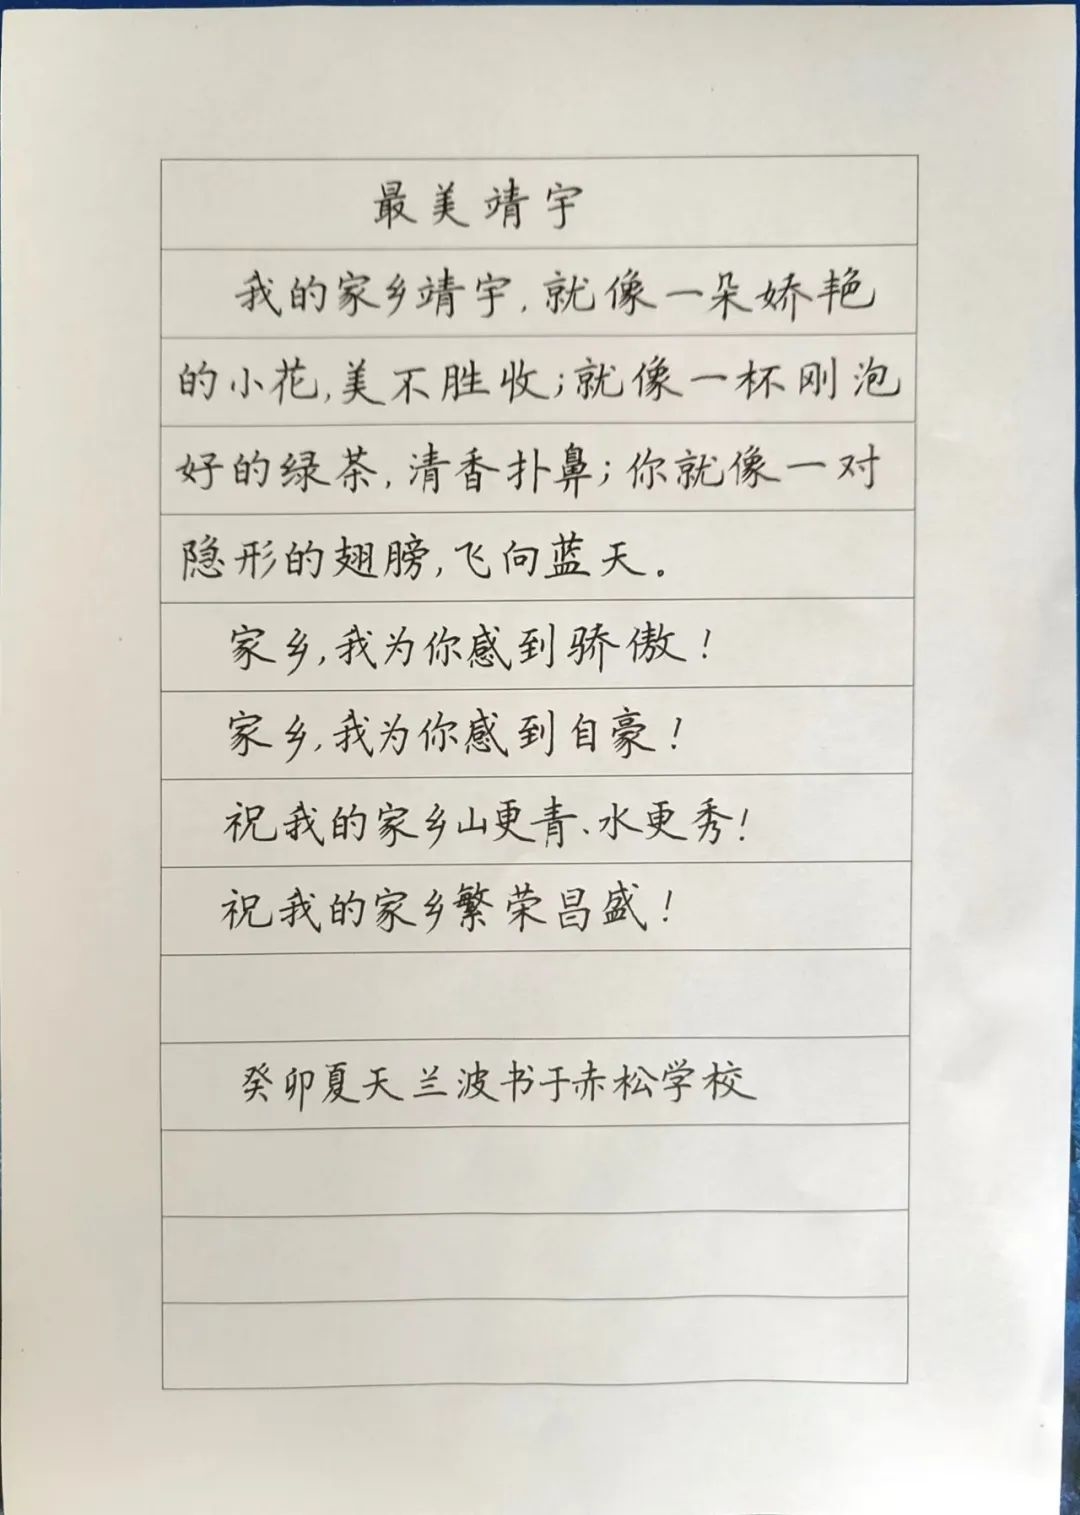 最美靖宇
我的家乡靖宇,就像一朵娇艳
的小花,美不胜收;就像一杯刚泡
好的绿茶,清香扑鼻;你就像一对
隐形的翅膀,飞向蓝天。
家乡,我为你感到骄傲!
家乡,我为你感到自豪!
祝我的家乡山更青、水更秀!
祝我的家乡繁荣昌盛!
癸卯夏天兰波书于赤松学校